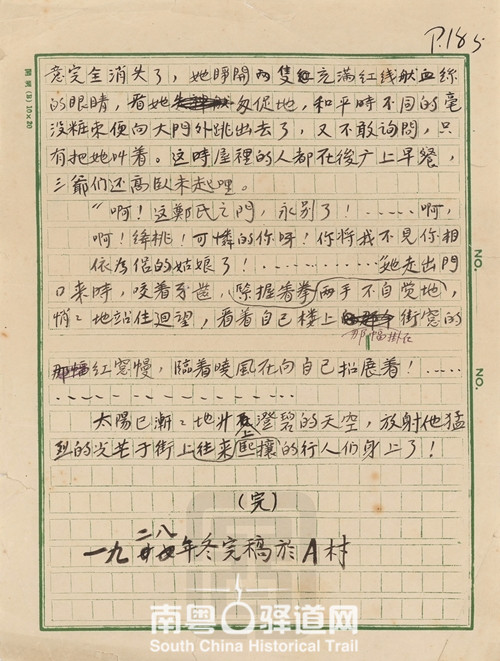 P.185
意完全消失了，她睜開两隻充满红线般血絲
的眼睛，看她匆促地，和平時不同的毫
没粧束便向大門外跳出去了，又不敢詢問，只
有把她叫着。这時屋裡的人都在後厅上早餐，
三爺们还高臥未起哩。
“啊！这鄭氏之門，永别了！……啊，
啊！絳桃！可憐的你呀！你将我不見你相
依为侣的姑娘了！…………她走出門
口来時，咬着牙齒，緊握着拳两手不自觉地，
悄々地站住迴望，看着自己楼上街窓的
那幅掛在
红窓幔，臨着曉風在向自己招展着！……
………………
太陽已漸々地升上澄碧的天空，放射他猛
烈的光芒于街上往来熙攘的行人们身上了！
（完）
二八
一九年冬完稿於A村
NO.
NO.
南粤古驿道网
South China Historical Trail